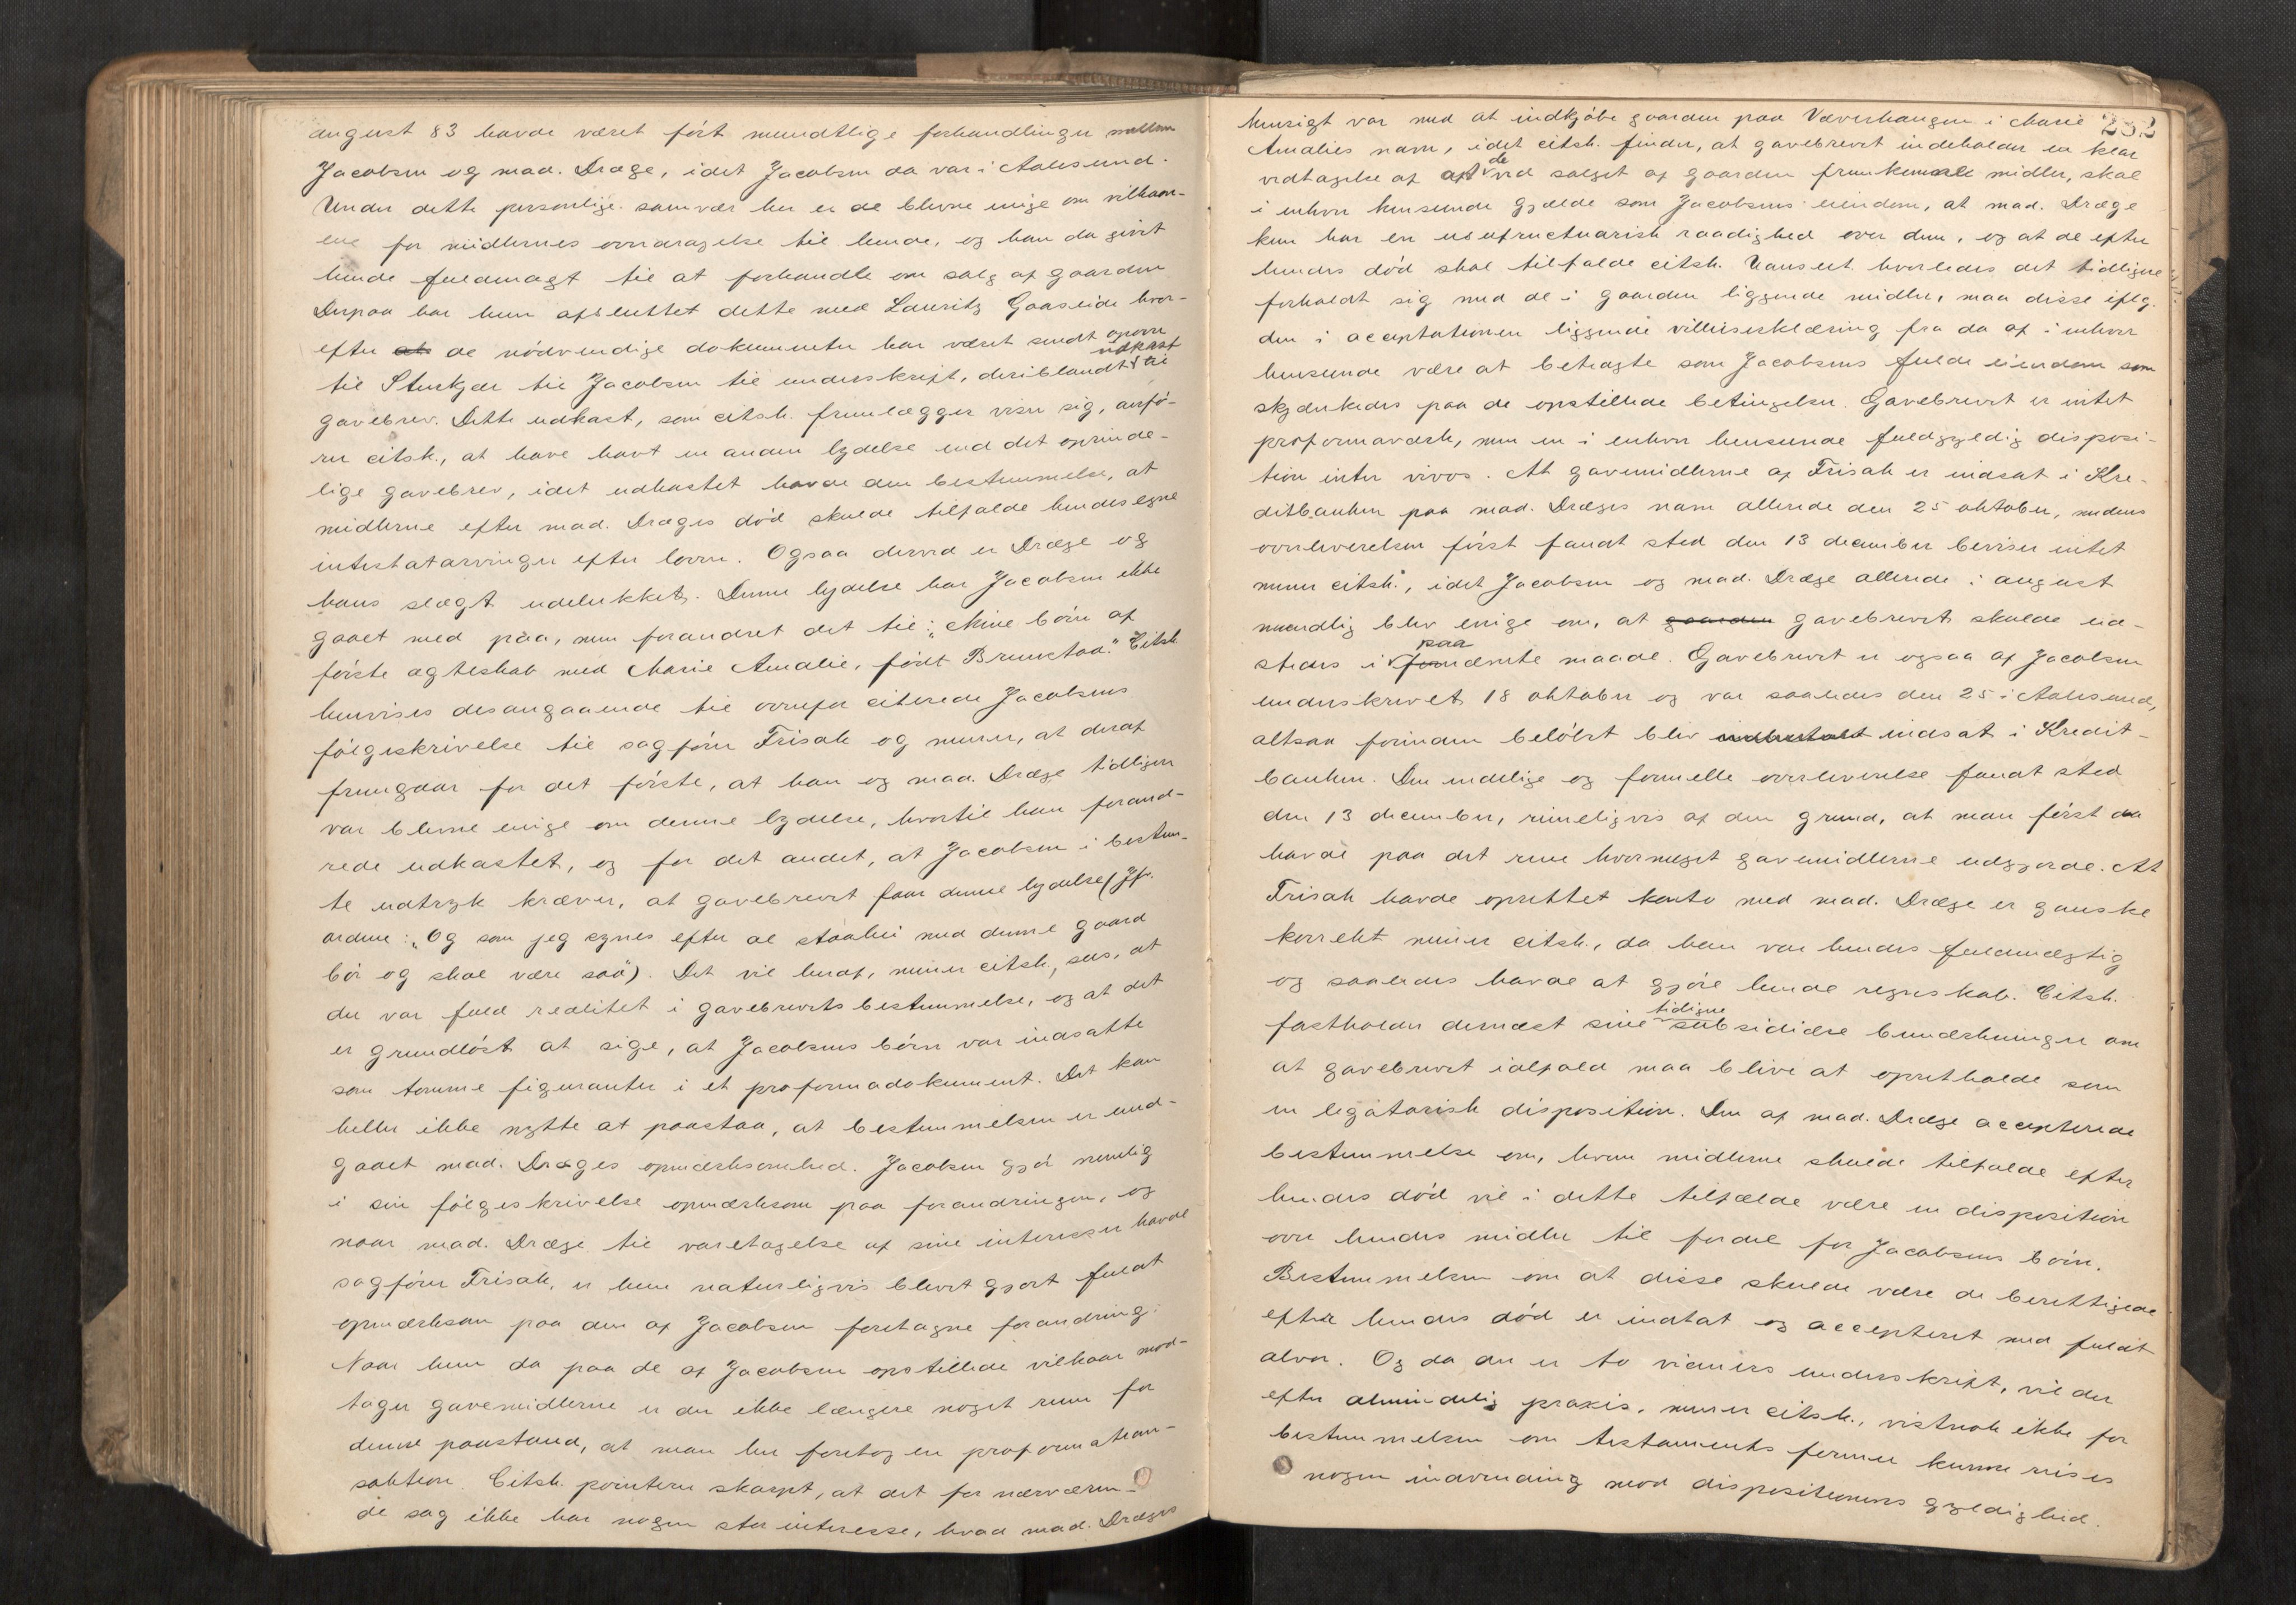 august 83 havde været ført mundtlige forhandlinger mellem
Jacobsen og mad. Dræge, idet Jacobsen da var i Aalesund.
Under dette personlige samvær her er de blevne enige om vilkaar-
ene for midlernes overdragelse til hende, og han da givet
hende fuldmagt til at forhandle om salg af gaarden
Derpaa har hun afsluttet dette med Lauritz Gaaseide hvor-
efter at de nödvendige dokumenter har været sendt opover
til Sturkjær til Jacobsen til underskrift, deriblandt udkast til
gavebrev. Dette udkast, som citsk. fremlægger viser sig, anfö-
rer citsk., at have havt en anden lydelse end det oprinde-
lige gavebrev, idet udkastet havde den bestemmelse, at
midlerne efter mad. Dræges död skulde tilfalde hendes egne
intestatarvinger efter loven. Ogsaa derved er Dræge og
hans slægt udelukket. Denne lydelse har Jacobsen ikke
gaaet med paa, men forandret det til: „Mine börn af
förste ægteskab med Marie Amalie, født Brunstad." Citsk.
henvises desangaaende til ovenfor citerede Jacobsens
fölgeskrivelse til sagförer Frisak og mener, at deraf
fremgaar for det förste, at han og mad. Dræge tidligere
var blevne enige om denne lydelse, hvortil han forand-
rede udkastet, og for det andet, at Jacobsen i bestem-
te udtryk kræver, at gavebrevet faar denne lydelse (Jfr.
ordene: „Og som jeg synes efter al staahei med denne gaard
bör og skal være saa"). Det vil heraf, mener citsk., sees, at
der var fuld realitet i gavebrevets bestemmelse, og at det
er grundlöst at sige, at Jacobsens börn var indsatte
som tomme figuranter i et proformadokument. Det kan
heller ikke nytte at paastaa, at bestemmelsen er und-
gaaet mad. Dræges opmærksomhed. Jacobsen gjör nemlig
i sin fölgeskrivelse opmærksom paa forandringen, og
naar mad. Dræge til varetagelse af sine interesser havde
sagförer Frisak, er hun naturligvis blevet gjort fuldt
opmærksom paa den af Jacobsen foretagne forandring.
Naar hun da paa de af Jacobsen opstillede vilkaar mod-
tager gavemidlerne er der ikke længere noget rum for
denne paastand, at man her foretog en proformatran-
saktion. Citsk. pointerer skarpt, at det for nærværen-
de sag ikke har nogen stor interesse, hvad mad. Dræges
252
hensigt var med at indkjöbe gaarden paa Væverhaugen i Marie
Amalies navn, idet citsk. finder, at gavebrevet indeholder en klar
vedtagelse af at de ved salget af gaarden fremkomne midler, skal
i enhver henseende gjælde som Jacobsens eiendom, at mad. Dræge
kun har en usufructuarisk raadighed over dem, og at de efter
hendes död skal tilfalde citsk. Uanseet hvorledes det tidligere
forholdt sig med de i gaarden liggende midler, maa disse iflg.
den i acceptationen liggende villieserklæring fra da af i enhver
henseende være at betragte som Jacobsens fulde eiendom som
skjænkedes paa de opstillede betingelser. Gavebrevet er intet
proformaværk, men en i enhver henseende fuldgyldig disposi-
tion inter vivos. At gavemidlerne af Frisak er indsat i Kre-
ditbanken paa mad. Dræges navn allerede den 25 oktober, medens
overleverelsen først fandt sted den 13 december beviser intet
mener citsk., idet Jacobsen og mad. Dræge allerede i august
mundlig blev enige om, at gaarden gavebrevet skulde ud-
stedes i paa nævnte maade. Gavebrevet er ogsaa af Jacobsen
underskrevet 18 oktober og var saaledes den 25 i Aalesund,
altsaa forinden belöbet blev indbetalt indsat i Kredit-
banken. Den endelige og formelle overleverelse fandt sted
den 13 december, rimeligvis af den grund, at man först da
havde paa det rene hvormeget gavemidlerne udgjorde. At
Frisak havde oprettet konto med mad. Dræge er ganske
korrekt mener citsk., da han var hendes fuldmægtig
og saaledes havde at gjöre hende regnskab. Citsk.
fastholder dernæst sine tidligere subsidiære bemærkninger om
at gavebrevet ialfald maa blive at opretholde som
en legatarisk disposition. Den af mad. Dræge accepterede
bestemmelse om, hvem midlerne skulde tilfalde efter
hendes död vil i dette tilfælde være en disposition
over hendes midler til fordel for Jacobsens börn.
Bestemmelsen om at disse skulde være de berettigede
efter hendes död er indtat og accepteret med fuldt
alvor. Og da der er to vidners underskrift, vil der
efter almindelig praxis, mener citsk., vistnok ikke for
bestemmelsen om testaments former kunne reises
nogen indvending mod dispositionens gyldighed.